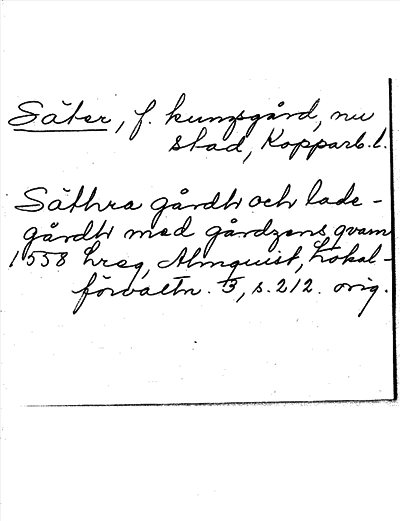 Säter, f. kungsgård, nu
stad, Kopparb. l.
Säthra gårdh och lade-
gårdh med gårdzens qvarn
1558 hreg, Almquist, Lokal-
förvaltn. 3, s. 212. orig.